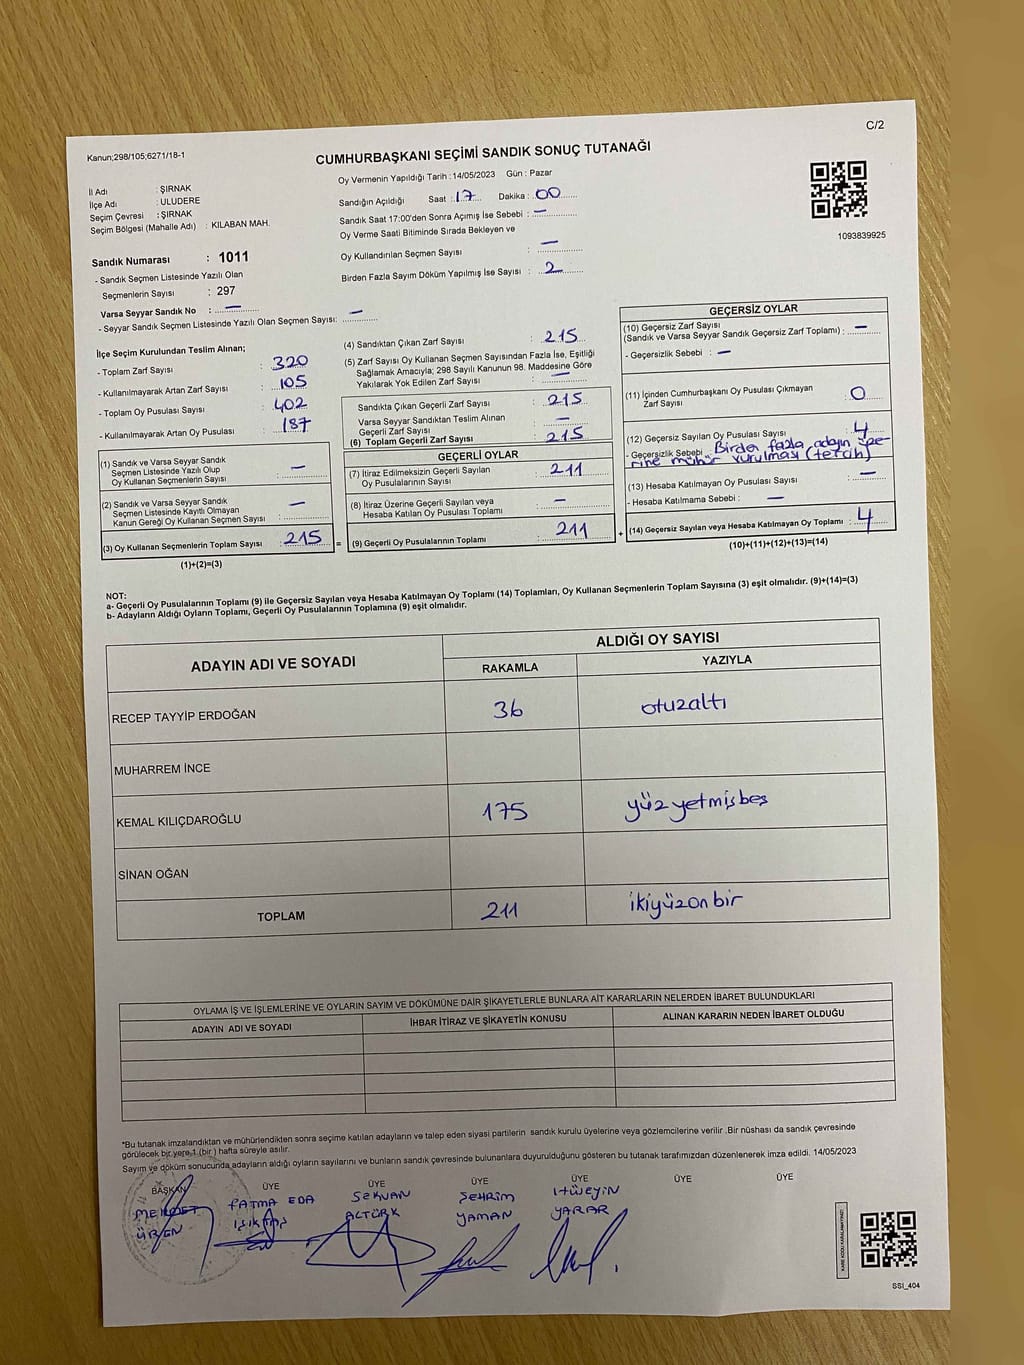 C/2
Kanun;298/105;6271/18-1
CUMHURBAŞKANI SEÇİMİ SANDIK SONUÇ TUTANAĞI
İl Adı : ŞIRNAK
İlçe Adı : ULUDERE
Seçim Çevresi : ŞIRNAK
Seçim Bölgesi (Mahalle Adı) : KILABAN MAH.
Sandık Numarası : 1011
- Sandık Seçmen Listesinde Yazılı Olan
Seçmenlerin Sayısı : 297
Varsa Seyyar Sandık No : —
- Seyyar Sandık Seçmen Listesinde Yazılı Olan Seçmen Sayısı: —
Oy Vermenin Yapıldığı Tarih : 14/05/2023 Gün : Pazar
Sandığın Açıldığı Saat : 17 Dakika : 00
Sandık Saat 17:00'den Sonra Açımış İse Sebebi : —
Oy Verme Saati Bitiminde Sırada Bekleyen ve
Oy Kullandırılan Seçmen Sayısı : —
Birden Fazla Sayım Döküm Yapılmış İse Sayısı : 2
1093839925
İlçe Seçim Kurulundan Teslim Alınan;
- Toplam Zarf Sayısı : 320
- Kullanılmayarak Artan Zarf Sayısı : 105
- Toplam Oy Pusulası Sayısı : 402
- Kullanılmayarak Artan Oy Pusulası : 187
(1) Sandık ve Varsa Seyyar Sandık
Seçmen Listesinde Yazılı Olup
Oy Kullanan Seçmenlerin Sayısı : —
(2) Sandık ve Varsa Seyyar Sandık
Seçmen Listesinde Kayıtlı Olmayan
Kanun Gereği Oy Kullanan Seçmen Sayısı : —
(3) Oy Kullanan Seçmenlerin Toplam Sayısı : 215 =
(1)+(2)=(3)
(4) Sandıktan Çıkan Zarf Sayısı : 215
(5) Zarf Sayısı Oy Kullanan Seçmen Sayısından Fazla İse, Eşitliği
Sağlamak Amacıyla; 298 Sayılı Kanunun 98. Maddesine Göre
Yakılarak Yok Edilen Zarf Sayısı : —
Sandıkta Çıkan Geçerli Zarf Sayısı : 215
Varsa Seyyar Sandıktan Teslim Alınan
Geçerli Zarf Sayısı : —
(6) Toplam Geçerli Zarf Sayısı : 215
GEÇERLİ OYLAR
(7) İtiraz Edilmeksizin Geçerli Sayılan
Oy Pusulalarının Sayısı : 211
(8) İtiraz Üzerine Geçerli Sayılan veya
Hesaba Katılan Oy Pusulası Toplamı : —
(9) Geçerli Oy Pusulalarının Toplamı : 211 +
GEÇERSİZ OYLAR
(10) Geçersiz Zarf Sayısı
(Sandık ve Varsa Seyyar Sandık Geçersiz Zarf Toplamı) : —
- Geçersizlik Sebebi : —
(11) İçinden Cumhurbaşkanı Oy Pusulası Çıkmayan
Zarf Sayısı : 0
(12) Geçersiz Sayılan Oy Pusulası Sayısı : 4
- Geçersizlik Sebebi Birden fazla adayın üze-
rine mühür vurulması (tercih)
(13) Hesaba Katılmayan Oy Pusulası Sayısı : —
- Hesaba Katılmama Sebebi : —
(14) Geçersiz Sayılan veya Hesaba Katılmayan Oy Toplamı : 4
(10)+(11)+(12)+(13)=(14)
NOT:
a- Geçerli Oy Pusulalarının Toplamı (9) ile Geçersiz Sayılan veya Hesaba Katılmayan Oy Toplamı (14) Toplamları, Oy Kullanan Seçmenlerin Toplam Sayısına (3) eşit olmalıdır. (9)+(14)=(3)
b- Adayların Aldığı Oyların Toplamı, Geçerli Oy Pusulalarının Toplamına (9) eşit olmalıdır.
ADAYIN ADI VE SOYADI ALDIĞI OY SAYISI
RAKAMLA YAZIYLA
RECEP TAYYİP ERDOĞAN 36 otuzaltı
MUHARREM İNCE
KEMAL KILIÇDAROĞLU 175 yüzyetmişbeş
SİNAN OĞAN
TOPLAM 211 ikiyüzonbir
OYLAMA İŞ VE İŞLEMLERİNE VE OYLARIN SAYIM VE DÖKÜMÜNE DAİR ŞİKAYETLERLE BUNLARA AİT KARARLARIN NELERDEN İBARET BULUNDUKLARI
ADAYIN ADI VE SOYADI İHBAR İTİRAZ VE ŞİKAYETİN KONUSU ALINAN KARARIN NEDEN İBARET OLDUĞU
*Bu tutanak imzalandıktan ve mühürlendikten sonra seçime katılan adayların ve talep eden siyasi partilerin sandık kurulu üyelerine veya gözlemcilerine verilir .Bir nüshası da sandık çevresinde
görülecek bir yere 1 (bir ) hafta süreyle asılır.
Sayım ve döküm sonucunda adayların aldığı oyların sayılarını ve bunların sandık çevresinde bulunanlara duyurulduğunu gösteren bu tutanak tarafımızdan düzenlenerek imza edildi. 14/05/2023
BAŞKAN ÜYE ÜYE ÜYE ÜYE ÜYE ÜYE
MEHMET FATMA EDA SEKVAN ŞEHRİM HÜSEYİN
ÜREN IŞIKTAŞ ALTÜRK YAMAN YARAR
SSI_404